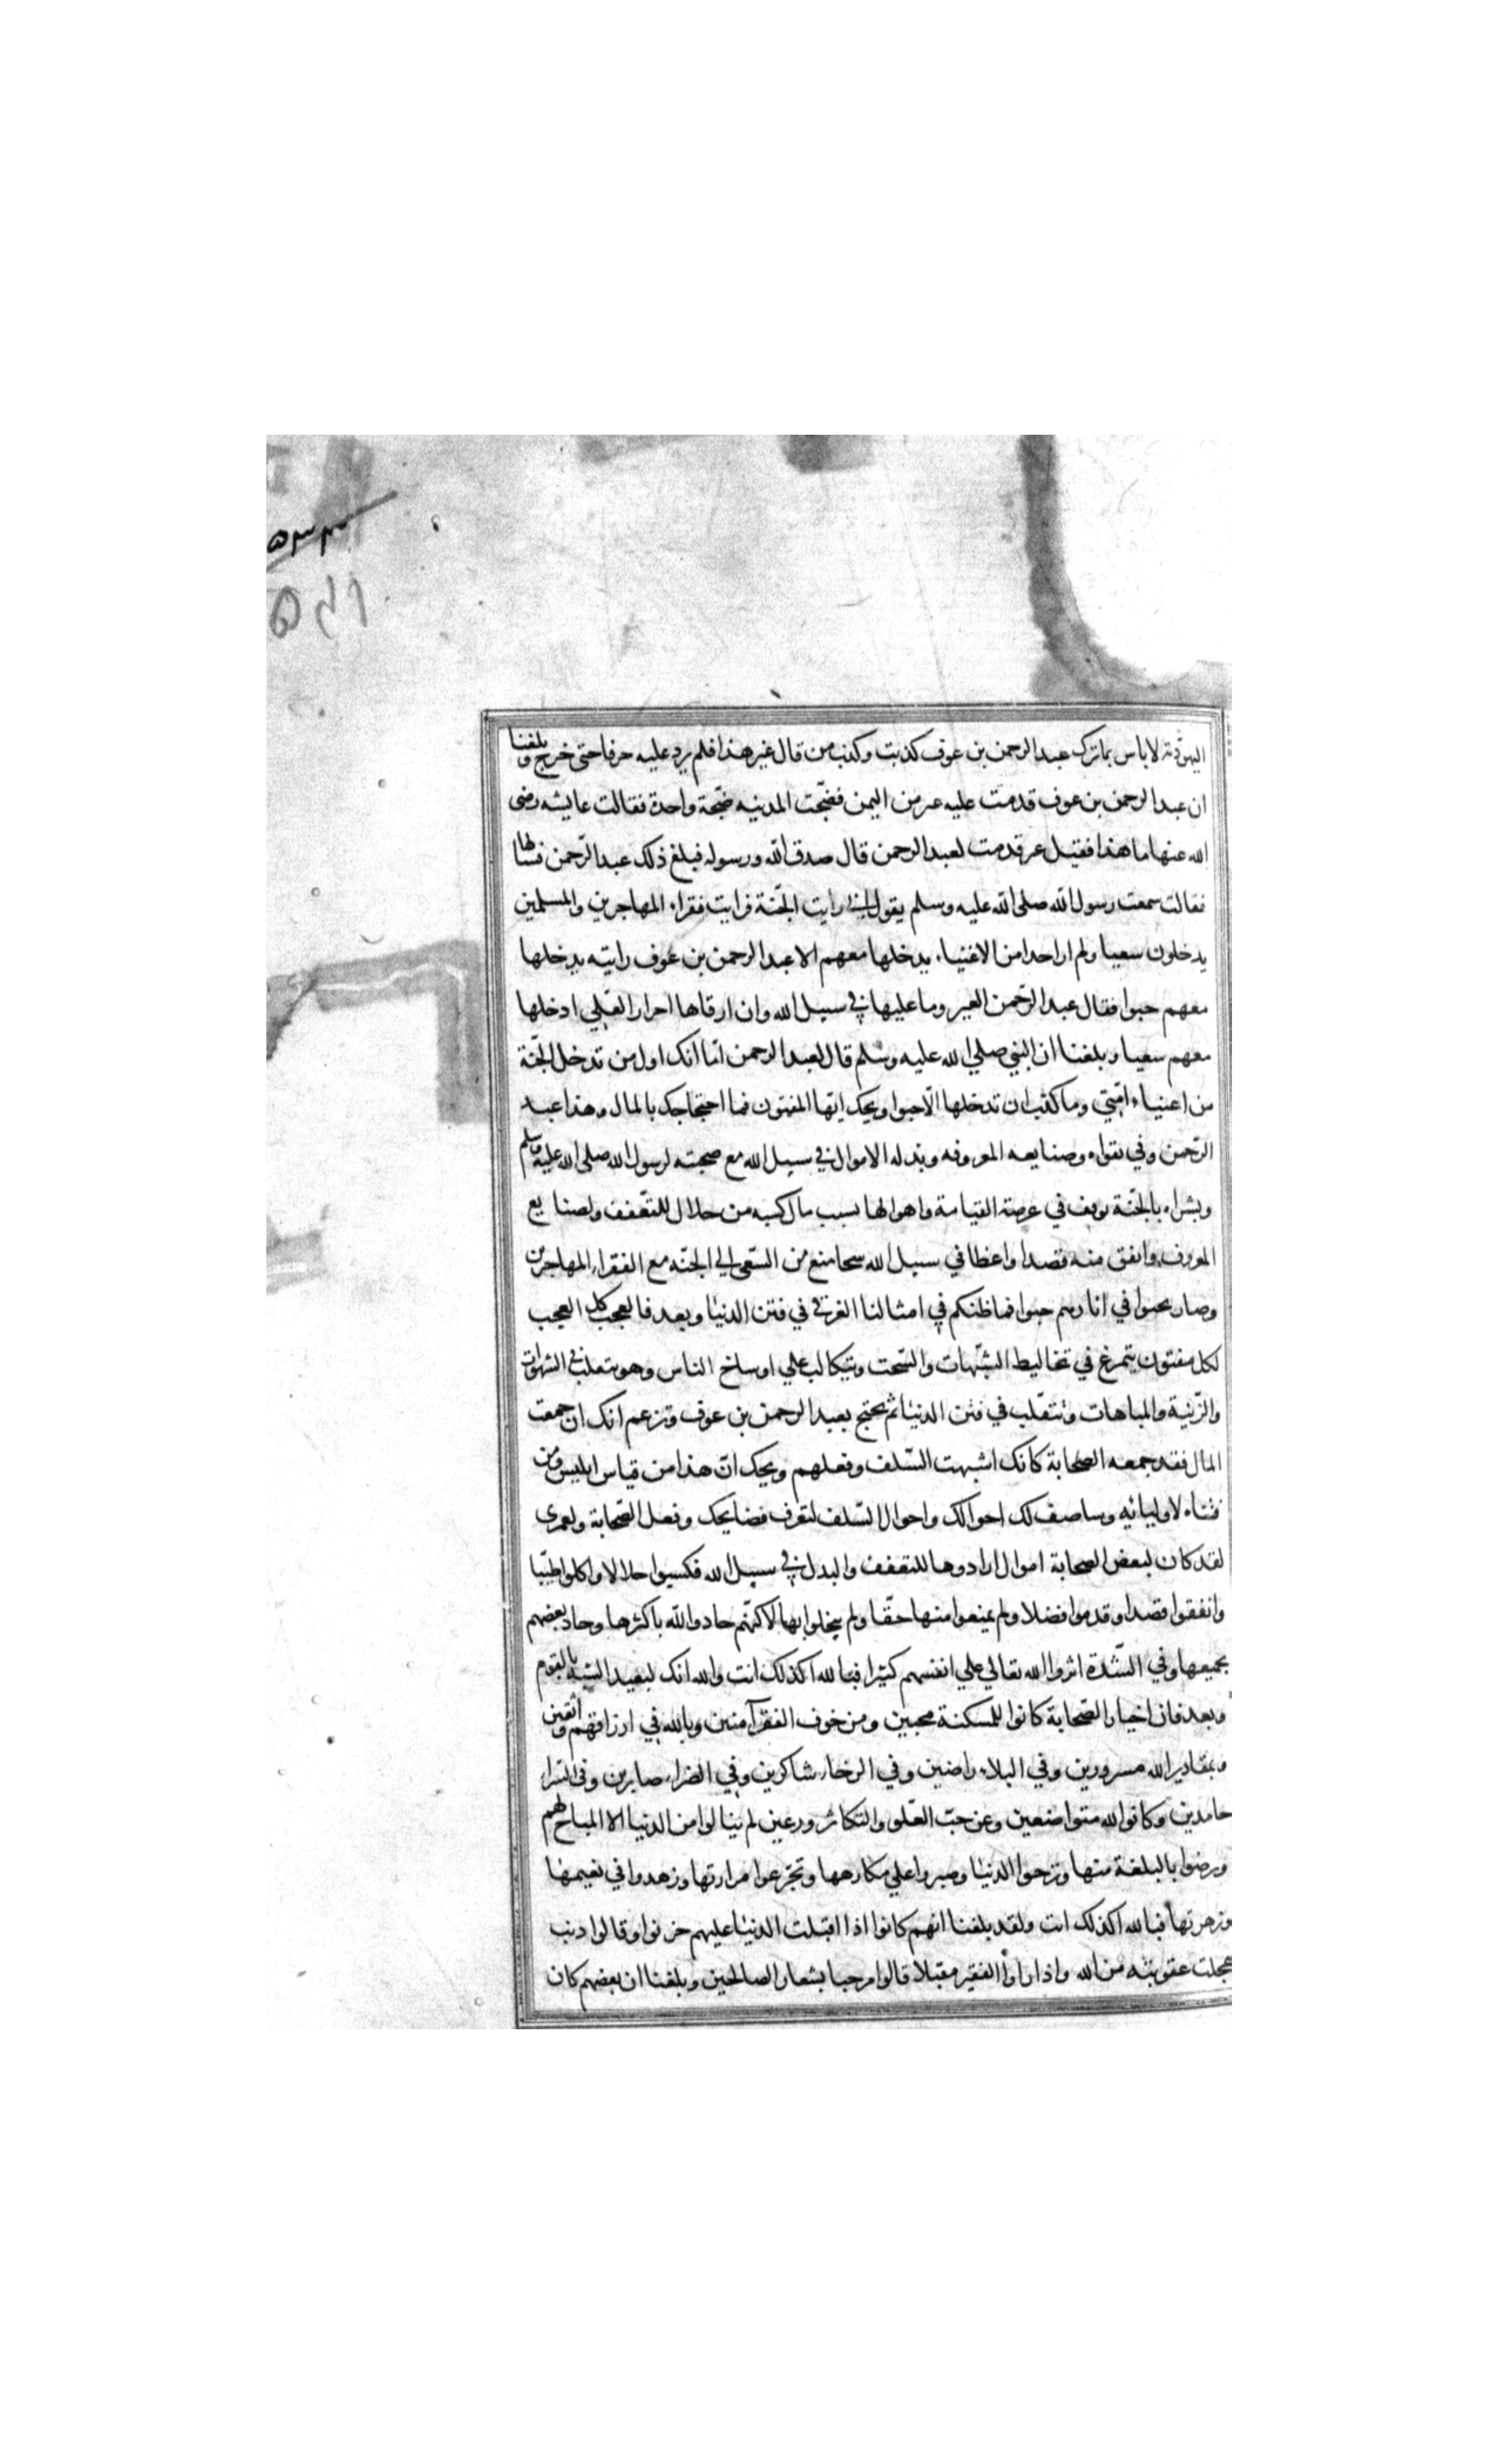 ۵۳۳
اليهودية لا باس بما ترك عبد الرحمن بن عوف كذبت وكذب من قال غير هذا فلم يرد عليه حرفا حتى خرج وبلغنا
ان عبد الرحمن بن عوف قدمت عليه عير من اليمن فضجّت المدينه ضجّة واحدة فقالت عايشه رضى
الله عنها ما هذا فقيل عير قدمت لعبد الرحمن قال صدق الله ورسوله فبلغ ذلك عبد الرّحمن فسالها
فقالت سمعت رسول الله صلى الله عليه وسلم يقول اني رايت الجّنة فرايت فقراء المهاجرين والمسلمين
يدخلون سعيا ولم ار احدا من الاغنياء يدخلها معهم الا عبد الرحمن بن عوف رايته يدخلها
معهم حبوا فقال عبد الرّحمن العير وما عليها في سبيل الله وان ارقاها احرار لعّلي ادخلها
معهم سعيا وبلغنا ان النبي صلي الله عليه وسلم قال لعبد الرحمن امّا انك اول من تدخل الجّنة
من اغنياء امّتي وما كدت ان تدخلها الّا حبوا ويحك ايّها المفتون فما احتجاجك بالمال وهذا عبد
الرّحمن وفي تقواه وصنايعه المعروفه وبذله الاموال في سبيل الله مع صحبته لرسول الله صلى الله عليه وسلم
وبشراه بالجّنة يوقف في عرصة القيامة واهوالها بسبب مال كسبه من حلال للتّعفف ولصنايع
المعروف وانفق منه قصدا واعطا في سبيل الله سحا منع من السّعى الي الجنّه مع الفقراء المهاجرين
وصار يحبوا في اثارهم حبوا فما ظنكم في امثالنا الغرقى في فتن الدنيا وبعد فالعجب كل العجب
لكل مفتون يتمرغ في تخاليط الشّبهات والسّحت ويتكالب علي اوساخ الناس وهو يتقلب في الشهوات
والزّينة والمباهات وتتقّلب في فتن الدنيا ثم يحتج بعبد الرحمن بن عوف وتزعم انك ان جمعت
المال فقد جمعه الصّحابة كانك اشبهت السّلف وفعلهم ويحك انّ هذا من قياس ابليس ومن
فتياه لاوليائه وساصف لك احوالك واحوال السّلف لتعرف فضايحك وفعل الصّحابة ولعمري
لقد كان لبعض الصحابة اموال ارادوها للتعفف والبذل في سبيل الله فكسبوا حلالا واكلوا طيّبا
وانفقوا قصدا وقدموا فضلا ولم يمنعوا منها حقّا ولم يبخلوا بها لاكنّهم جادوا لله باكثرها وجاد بعضهم
بجميعها وفي الشّدة اثروا الله تعالي علي انفسهم كثيرا فبالله اكذلك انت والله انك لبعيد الشبه بالقوم
وبعد فان اخيار الصّحابة كانوا للمسكنة محبين ومن خوف الفقر آمنين وبالله في ارزاقهم واثقين
وبمقادير الله مسرورين وفي البلاء راضين وفي الرخاء شاكرين وفي الضراء صابرين وفي السّراء
حامدين وكانوا لله متواضعين وعن حبّ العّلو والتكاثر ورعين لم ينالوا من الدنيا الا المباح لهم
ورضوا بالبلغة منها وزجوا الدنيا وصبروا علي مكارهها وتجّرعوا مرارتها وزهدوا في نعيمها
وزهرتها فبالله اكذلك انت ولقد بلغنا انهم كانوا اذا اقبلت الدنيا عليهم حزنوا وقالوا ذنب
عجلت عقوبته من الله واذا راوا الفقير مقبلا قالوا مرحبا بشعار الصالحين وبلغنا ان بعضهم كان